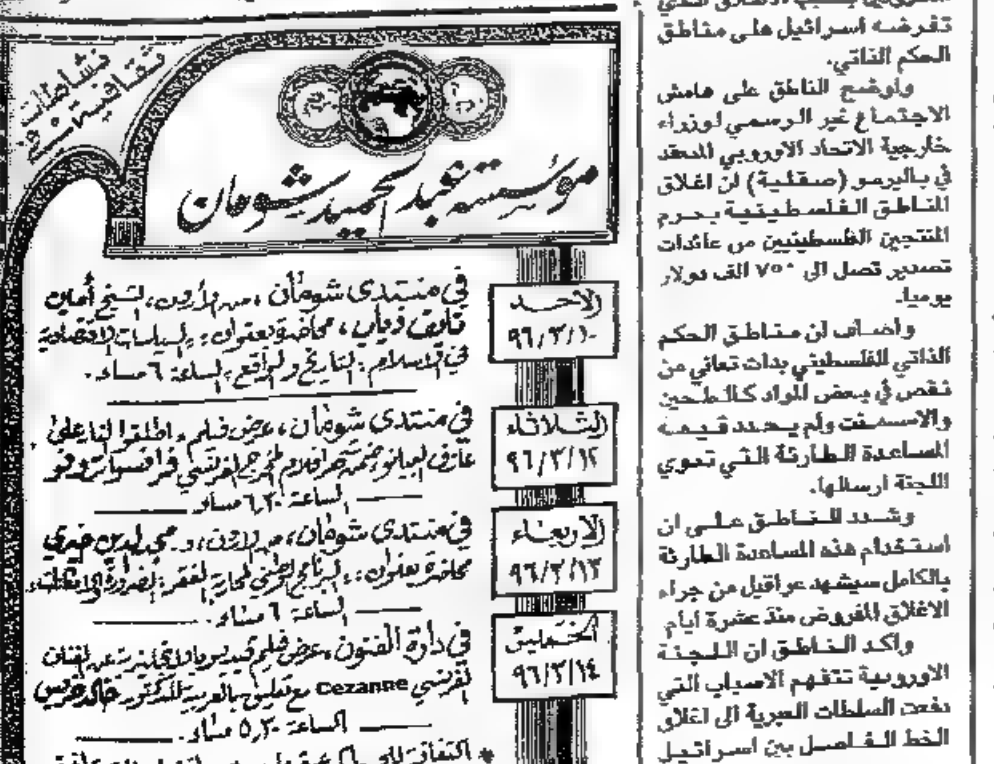 نشاطات
ثقافية
مؤسسة عبد الحميد شومان
الاحد
٩٦/٣/١٠
في منتدى شومان، من الأردن، الشيخ أمين
محاضرة بعنوان: السياسات الاقتصادية
في الاسلام: التاريخ والواقع، الساعة ٦ مساء.
الثلاثاء
٩٦/٣/١٢
في منتدى شومان، عرض فيلم، اطلقوا النار على
عازف البيانو، ضمن افلام المخرج الفرنسي فرانسوا تروفو
الساعة ٦,٣٠ مساء
الاربعاء
٩٦/٣/١٣
في منتدى شومان، من الاردن، د. خيري
محاضرة بعنوان: البرنامج الوطني لمحاربة الفقر: الضرورة والامكانات،
الساعة ٦ مساء.
الخميس
٩٦/٣/١٤
في دارة الفنون، عرض فيلم فيديو بالانجليزية عن الفنان
الفرنسي Cezanne مع تعليق بالعربية للدكتور خالد
الساعة ٥,٣٠ مساء.
تفرضه اسرائيل على مناطق
الحكم الذاتي.
واوضح الناطق على هامش
الاجتماع غير الرسمي لوزراء
خارجية الاتحاد الاوروبي المنعقد
في باليرمو (صقلية) ان اغلاق
المناطق الفلسطينية يحرم
المنتجين الفلسطينيين من عائدات
تصدير تصل الى ٧٥٠ الف دولار
يوميا.
واضاف ان مناطق الحكم
الذاتي الفلسطيني بدات تعاني من
نقص في بعض المواد كالطحين
والاسمنت ولم يحدد قيمة
المساعدة الطارئة التي تنوي
اللجنة ارسالها.
وشدد الناطق على ان
استخدام هذه المساعدة الطارئة
بالكامل سيشهد عراقيل من جراء
الاغلاق المفروض منذ عشرة ايام
واكد الناطق ان اللجنة
الاوروبية تتفهم الاسباب التي
دفعت السلطات العبرية الى اغلاق
الخط الفاصل بين اسرائيل